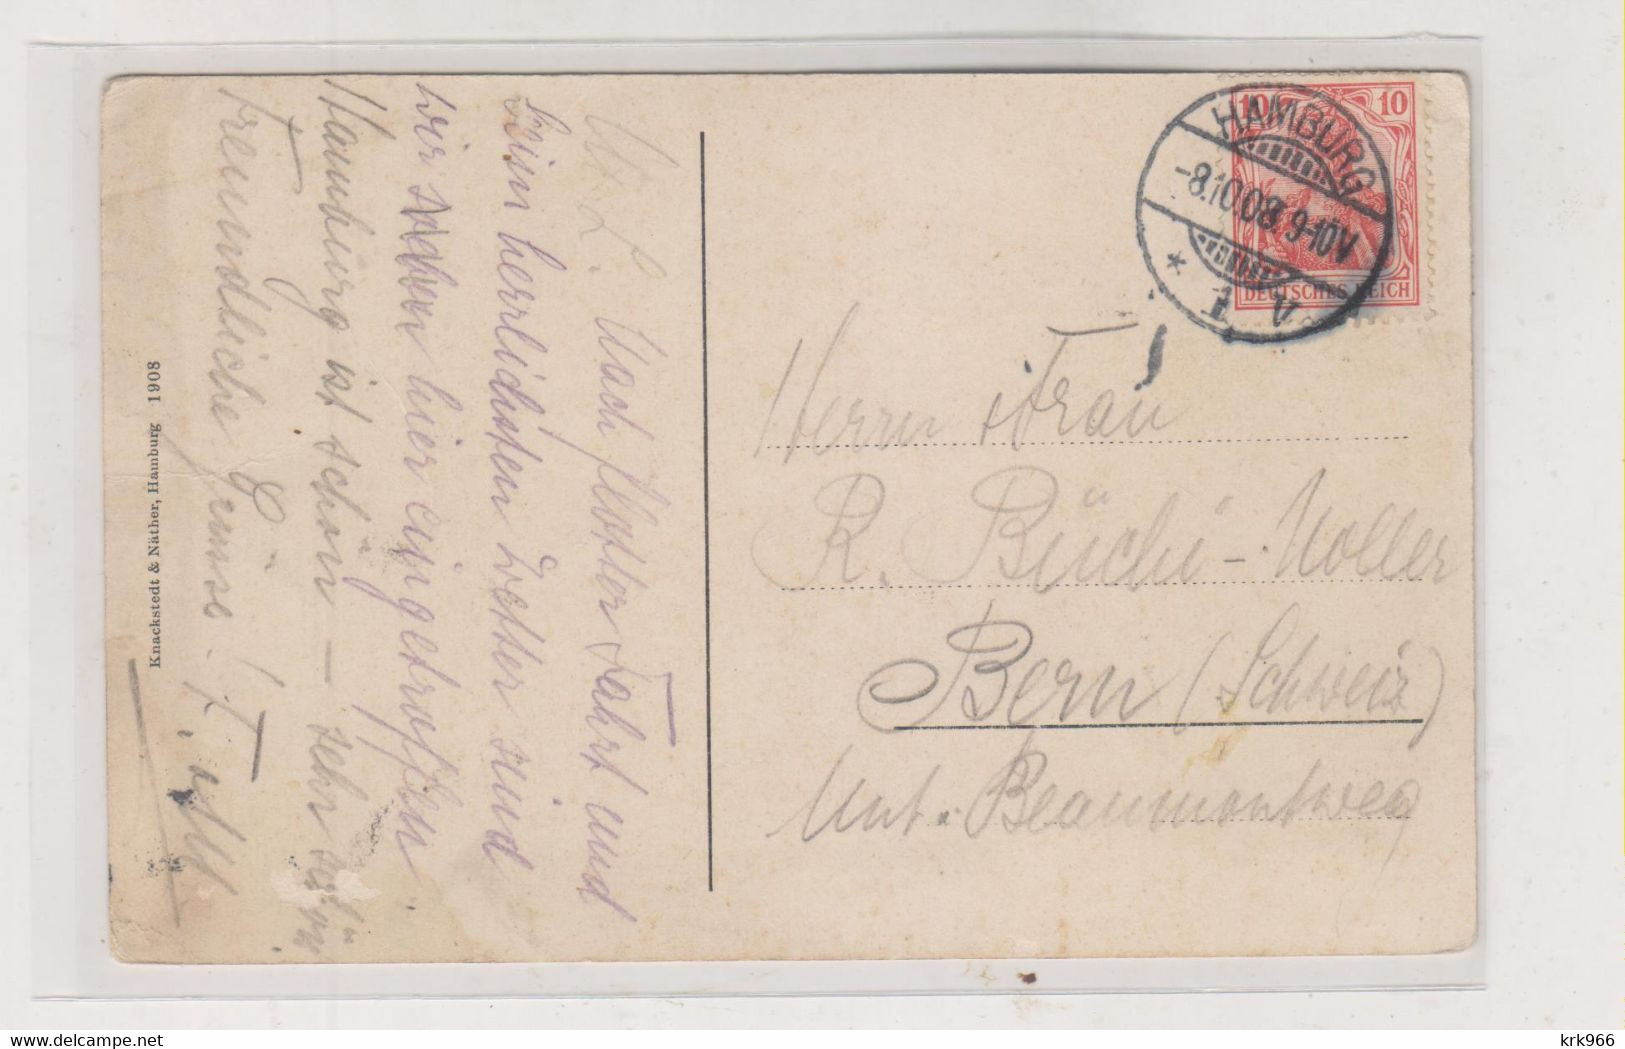 M. L. Nach flotter Fahrt und
beim herrlichsten Wetter sind
wir soeben hier eingetroffen.
Hamburg ist schön — sehr schön
Freundliche Grüsse. F.
Knackstedt & Näther, Hamburg 1908
10 10
DEUTSCHES REICH
HAMBURG
-8.10.08. 9-10V
* 1
Herrn & Frau
R. Büchi-Moller
Bern (Schweiz)
Unt. Beaumontweg
www.delcampe.net
krk966